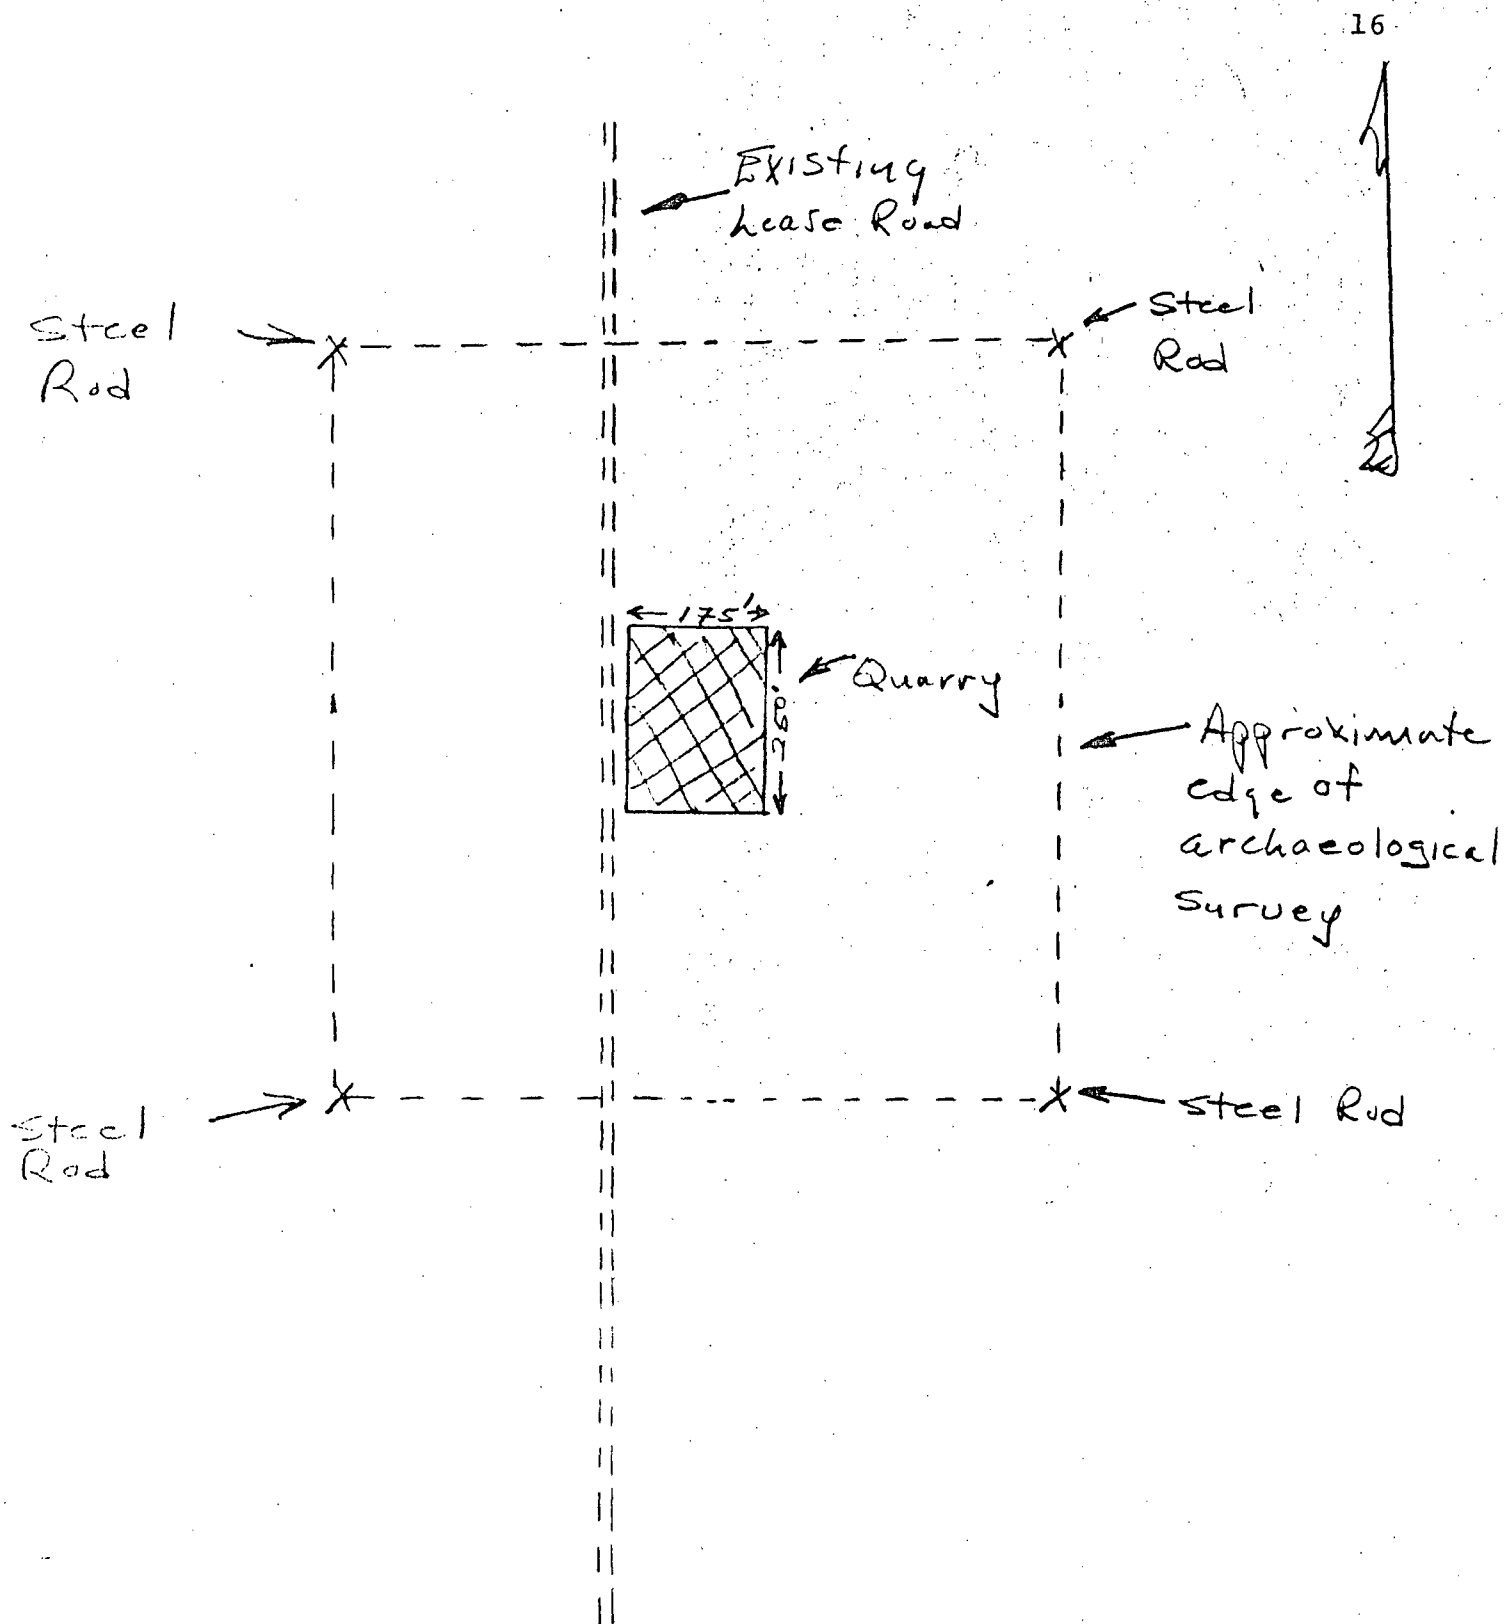 16
Existing
Lease Road
Steel
Rod
Steel
Rod
175'
Quarry
Approximate
edge of
archaeological
survey
Steel
Rod
Steel Rod